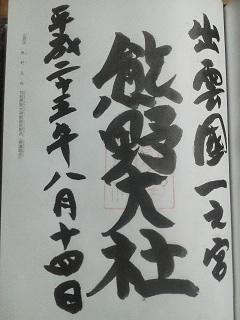 出雲國一之宮
熊野大社
平成二十五年八月十四日